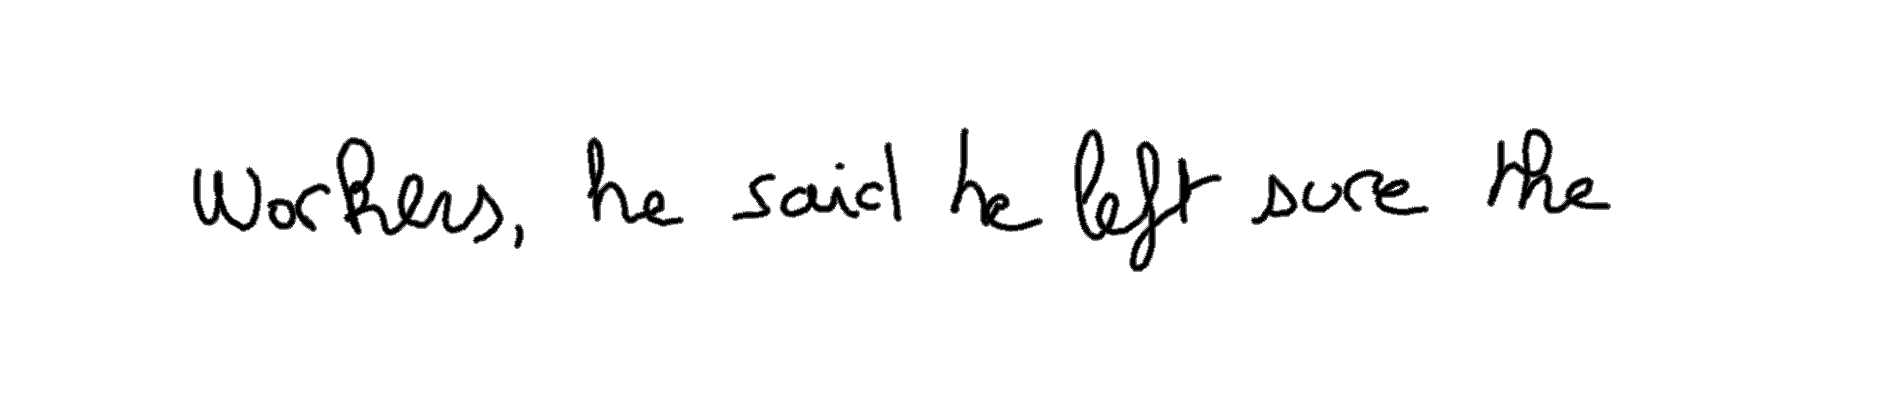 workers, he said he left sure the